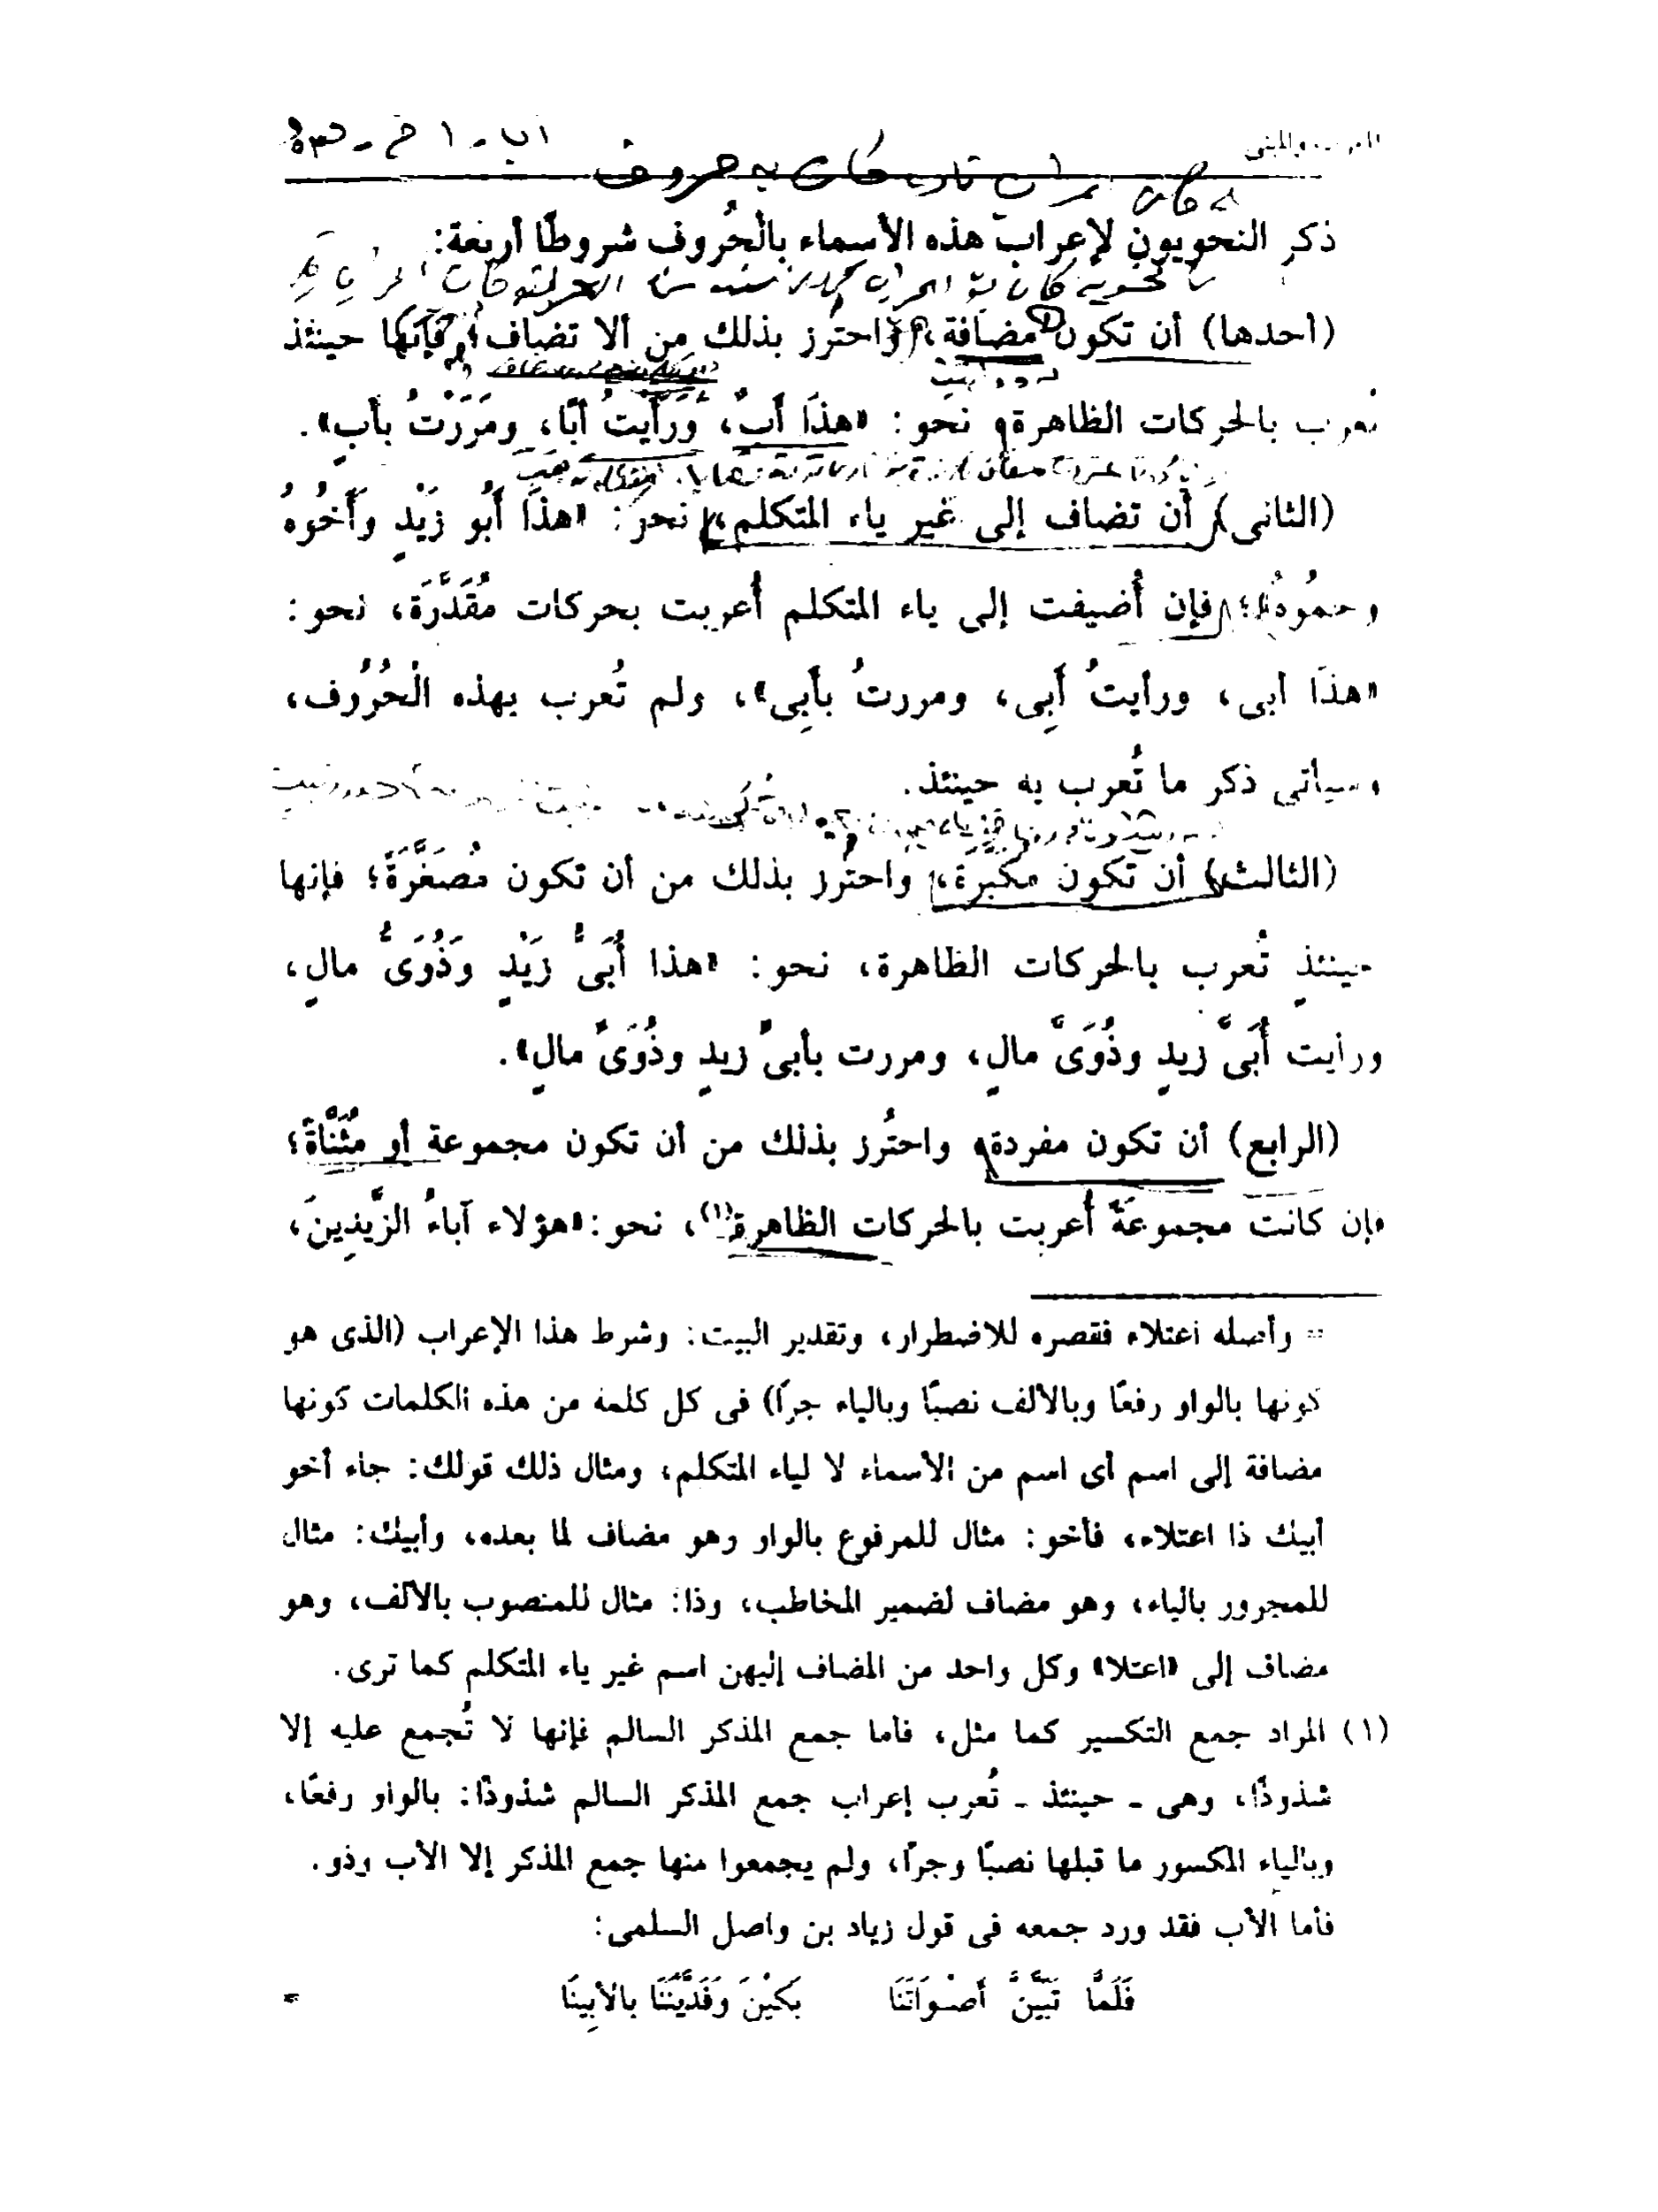 المعرب والمبنى
ذكر النحويون لإعراب هذه الأسماء بالْحُروف شروطًا أربعة:
(أحدها) أن تكون مضافة، واحترز بذلك من ألا تضاف؛ فإنها حينئذ
تعرب بالحركات الظاهرة، نحو: «هذَا أَبٌ، وَرَأَيتُ أبًا، ومَرَرْتُ بأبٍ».
(الثانى) أن تضاف إلى غير ياء المتكلم، نحو: «هذَا أَبُو زَيْدٍ وَأَخُوهُ
وحمُوهُ»؛ فإن أُضيفت إلى ياء المتكلم أُعربت بحركات مُقَدَّرَة، نحو:
«هذَا أبى، ورأيتُ أَبِى، ومررتُ بأبِى»، ولم تُعرب بهذه الْحُرُوف،
وسيأتى ذكر ما تُعرب به حينئذ.
(الثالث) أن تكون مكبرة، واحتُرز بذلك من أن تكون مُصَغَّرَةً؛ فإنها
حينئذٍ تُعرب بالحركات الظاهرة، نحو: «هذا أُبَىُّ زَيْدٍ وَذُوَىُّ مالٍ،
ورأيت أُبَىَّ زيدٍ وذُوَىَّ مالٍ، ومررت بأبىِّ زيدٍ وذُوَىِّ مالٍ».
(الرابع) أن تكون مفردة، واحتُرز بذلك من أن تكون مجموعة أو مُثَنَّاةً؛
فإن كانت مجموعةً أُعربت بالحركات الظاهرة(١)، نحو: «هؤلاء آباءُ الزَّيدِينَ،
= وأصله اعتلاء فقصره للاضطرار، وتقدير البيت: وشرط هذا الإعراب (الذى هو
كونها بالواو رفعًا وبالألف نصبًا وبالياء جراً) فى كل كلمة من هذه الكلمات كونها
مضافة إلى اسم أى اسم من الأسماء لا لياء المتكلم، ومثال ذلك قولك: جاء أخو
أبيك ذا اعتلاء، فأخو: مثال للمرفوع بالواو وهو مضاف لما بعده، وأبيك: مثال
للمجرور بالياء، وهو مضاف لضمير المخاطب، وذا: مثال للمنصوب بالألف، وهو
مضاف إلى «اعتلا» وكل واحد من المضاف إليهن اسم غير ياء المتكلم كما ترى.
(١) المراد جمع التكسير كما مثل، فأما جمع المذكر السالم فإنها لا تُجمع عليه إلا
شذوذًا، وهى ـ حينئذ ـ تُعرب إعراب جمع المذكر السالم شذوذًا: بالواو رفعًا،
وبالياء المكسور ما قبلها نصبًا وجراً، ولم يجمعوا منها جمع المذكر إلا الأب وذو.
فأما الأب فقد ورد جمعه فى قول زياد بن واصل السلمى:
فَلَمَّا تَبَيَّنَّ أَصْوَاتَنَا بَكَيْنَ وَفَدَّيْنَنَا بالأبِينَا
=